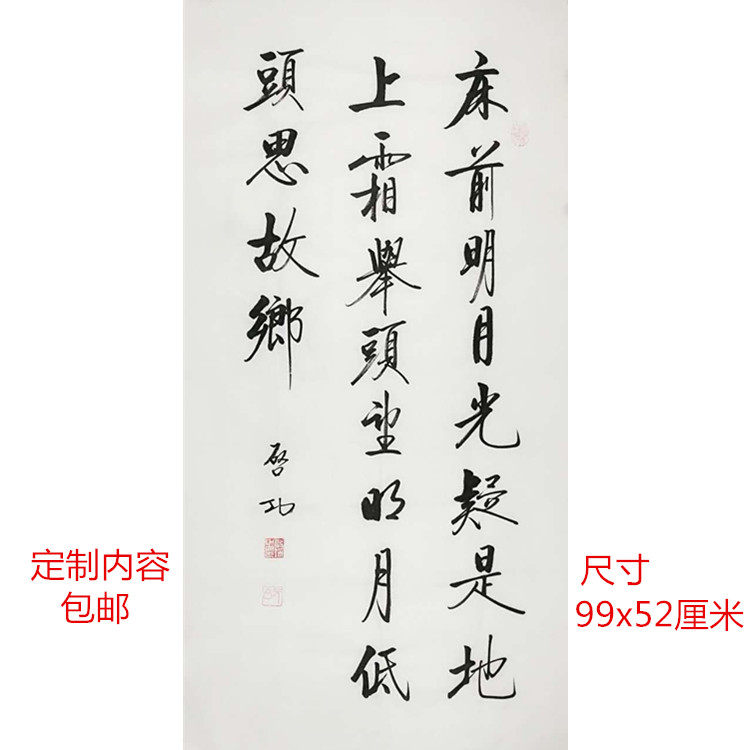 床前明月光疑是地
上霜舉頭望明月低
頭思故鄉
啓功
定制内容
包邮
尺寸
99x52厘米